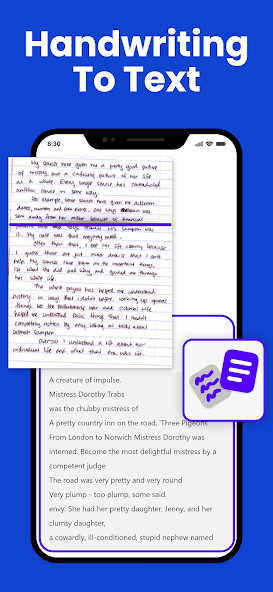 Handwriting
To Text
8:30
My sources have given me a pretty good picture
of
, but a confusing picture of her life
as a whole. Every single source has contradicted
another source in some way.
For example, some sources have given me different
dates, numbers and even events. One says
was
sent away from her mother because of financial
says because
was
ill. My rule was that majority rules.
Other than that, I got her life clearly because
I guess those are just minor details that I can't
help. My sources have been on the important things,
like what she did and why and guided me through
her whole life.
The whole project has helped me understand
history in ways that I didn't before. Looking up general
things like the Revolutionary War and Colonial Life
helped me understand basic things that I hadn't
completely gotten by only taking about
Deborah Sampson.
Overall I understand a lot about her
individual life and what that era was like.
A creature of impulse.
Mistress Dorothy Trabs
was the chubby mistress of
A pretty country inn on the road, 'Three Pigeons
From London to Norwich Mistress Dorothy was
interned. Become the most delightful mistress by a
competent judge
The road was very pretty and very round
Very plump - too plump, some said.
envy. She had her pretty daughter, Jenny, and her
clumsy daughter,
a cowardly, ill-conditioned, stupid nephew named